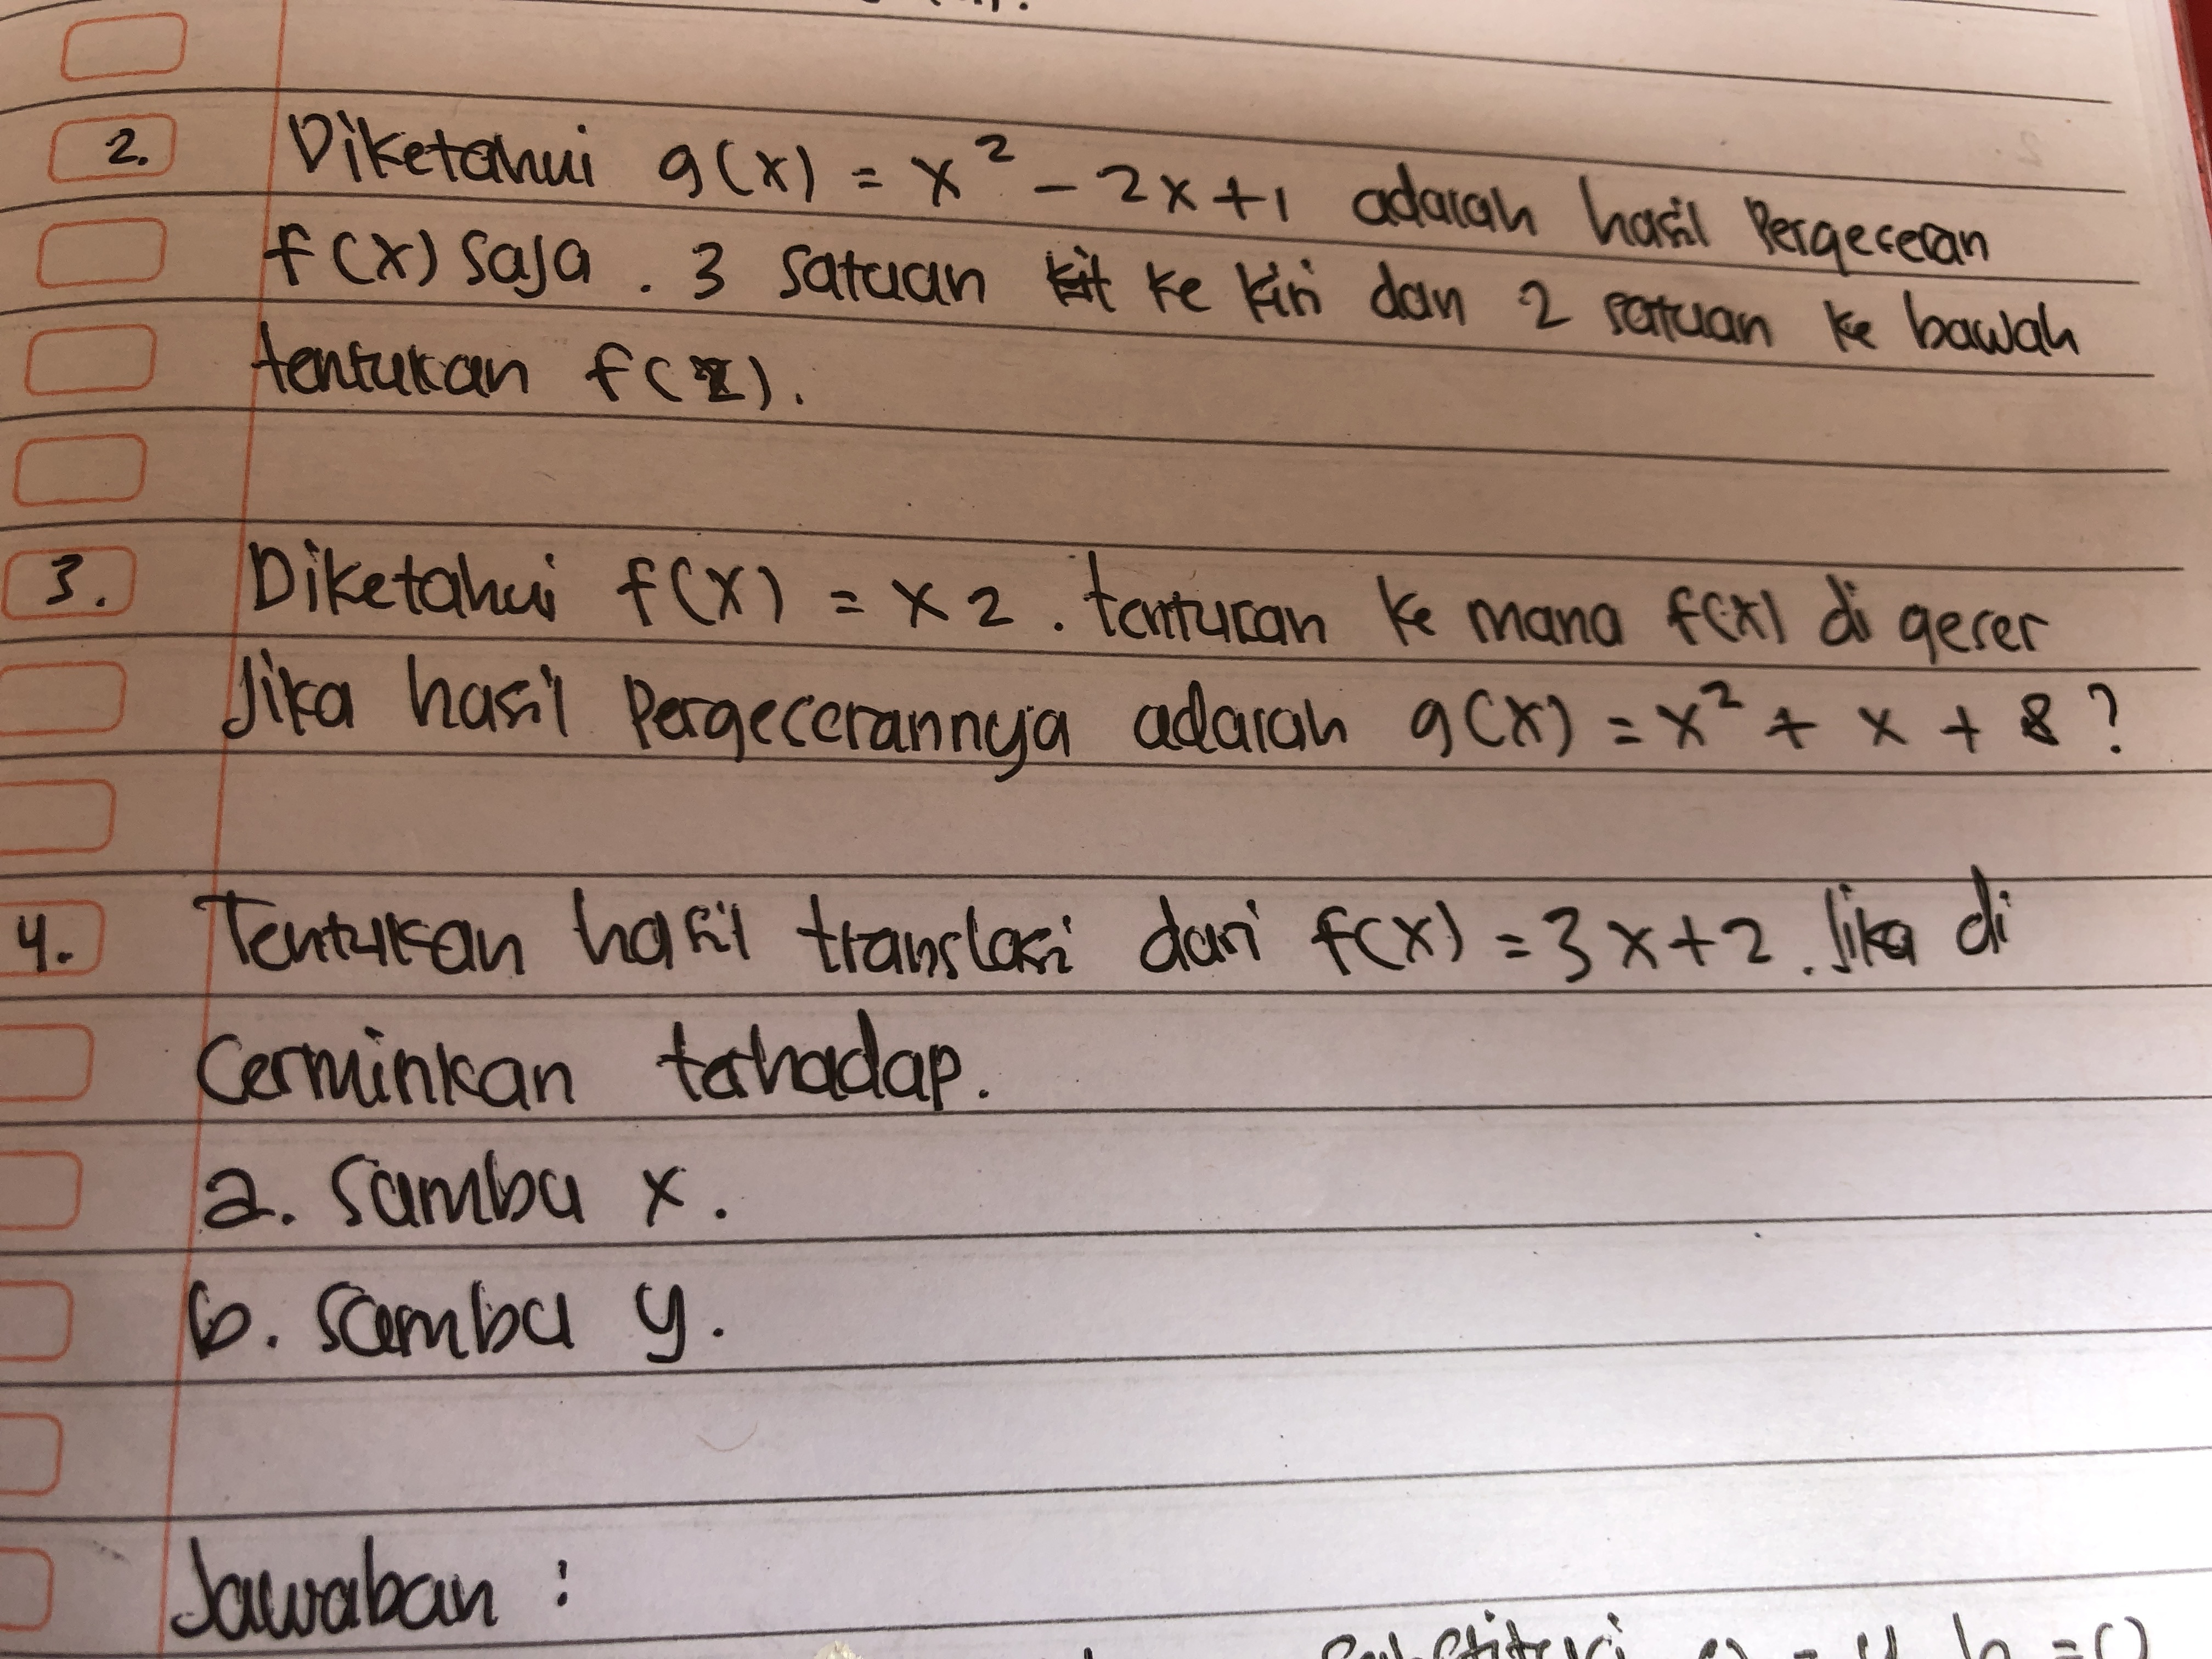 2. Diketahui g(x) = x² - 2x + 1 adalah hasil Pergeseran
f(x) saja. 3 satuan ke kiri dan 2 satuan ke bawah
tentukan f(x).
3. Diketahui f(x) = x 2. tentukan ke mana f(x) di geser
Jika hasil Pergeserannya adalah g(x) = x² + x + 8?
4. Tentukan hasil translasi dari f(x) = 3x+2. Jika di
Cerminkan terhadap.
a. Sumbu x.
b. Sumbu y.
Jawaban :